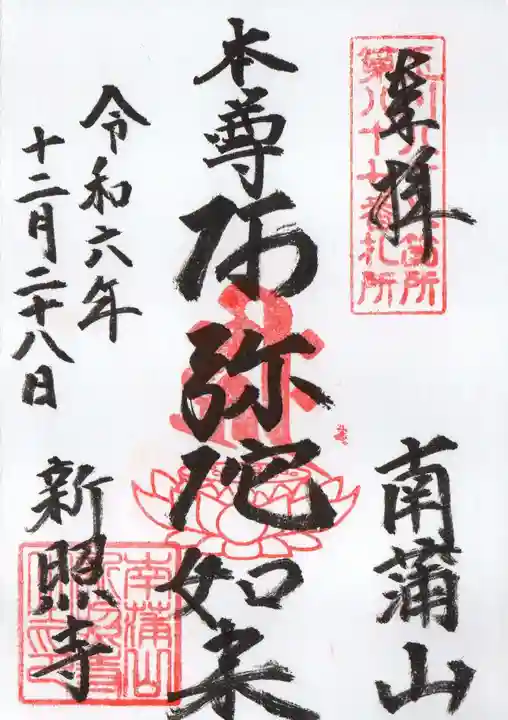 奉拝
第八十七番札所
南蒲山
本尊阿弥陀如来
令和六年
十二月二十八日
新照寺
南蒲山